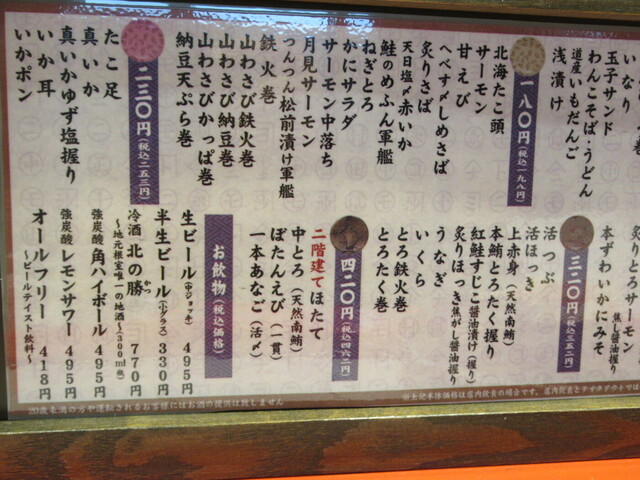 いなり
玉子サンド
わんこそば・うどん
道産いもだんご
浅漬け
一八〇円(税込一九八円)
北海たこ頭
サーモン
甘えび
へべす〆しめさば
炙りさば
天日塩〆赤いか
鮭のめふん軍艦
ねぎとろ
かにサラダ
サーモン中落ち
月見サーモン
つんつん松前漬け軍艦
鉄火巻
山わさび鉄火巻
山わさび納豆巻
山わさびかっぱ巻
納豆天ぷら巻
二三〇円(税込二五三円)
たこ足
真いか
真いかゆず塩握り
いか耳
いかポン
炙りとろサーモン
焦し醤油握り
本ずわいかにみそ
三二〇円(税込三五二円)
活つぶ
活ほっき
上赤身(天然南鮪)
本鮪とろたく握り
紅鮭すじこ醤油漬け(握り)
炙りほっき焦がし醤油握り
うなぎ
いくら
とろ鉄火巻
とろたく巻
四二〇円(税込四六二円)
二階建てほたて
中とろ(天然南鮪)
ぼたんえび(一貫)
一本あなご(活〆)
お飲物(税込価格)
生ビール(中ジョッキ) 495円
半生ビール(小グラス) 330円
冷酒 北の勝 770円
かつ
〜地元根室唯一の地酒〜(300ml瓶)
強炭酸 角ハイボール 495円
強炭酸 レモンサワー 495円
オールフリー 418円
〜ビールテイスト飲料〜
※上記本体価格は店内飲食の場合です。店内飲食とテイクアウトでは
20歳未満の方や運転されるお客様にはお酒の提供は致しません